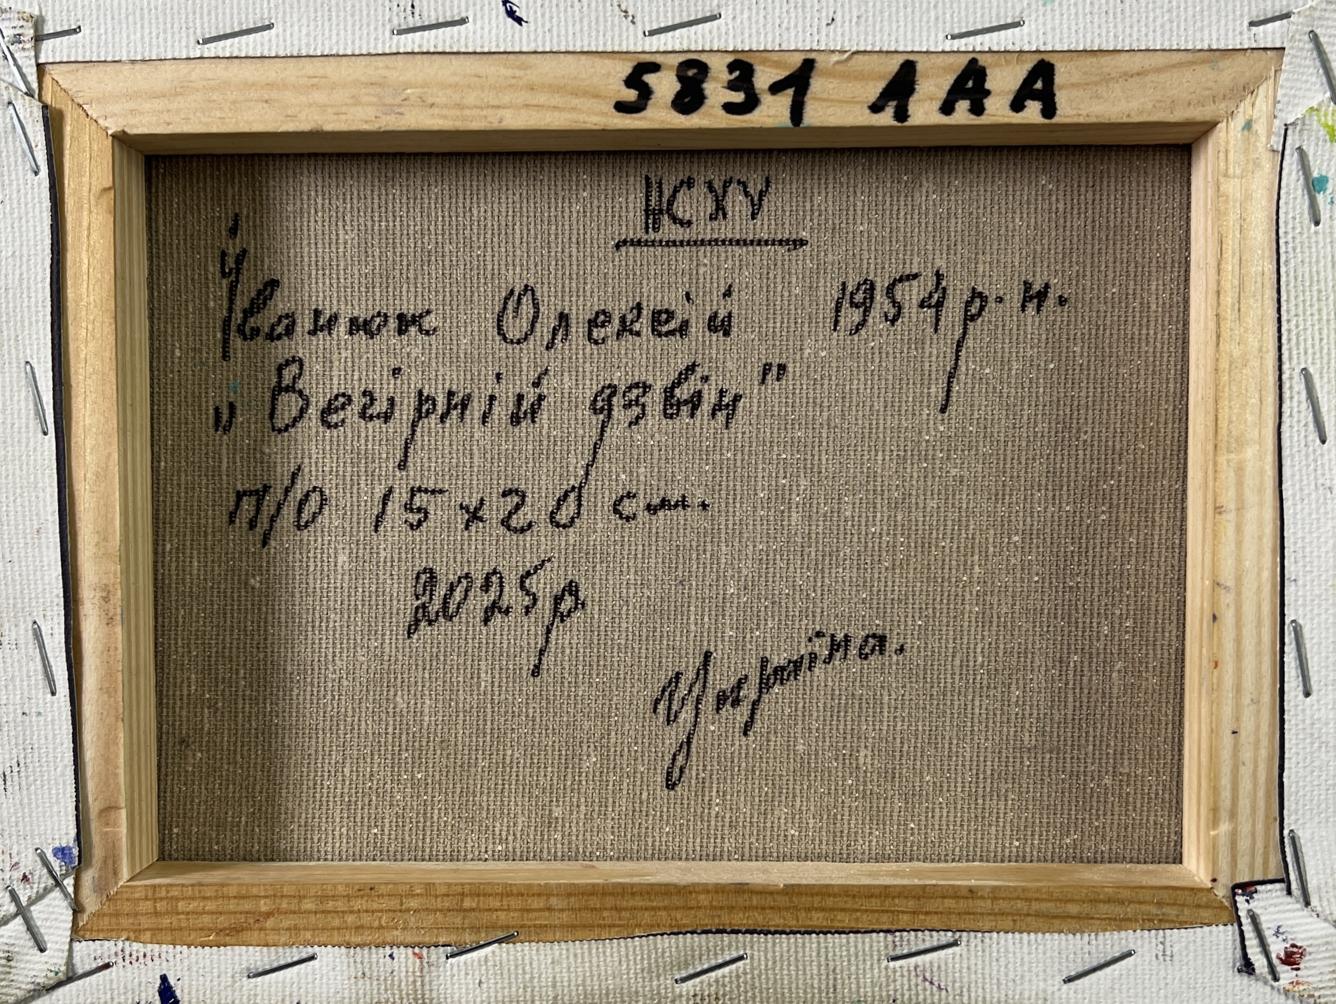 5831 AAA
НСХУ
Іванюк Олексій 1954 р.н.
„Вечірній дзвін"
п/о 15х20 см.
2025р
Україна.